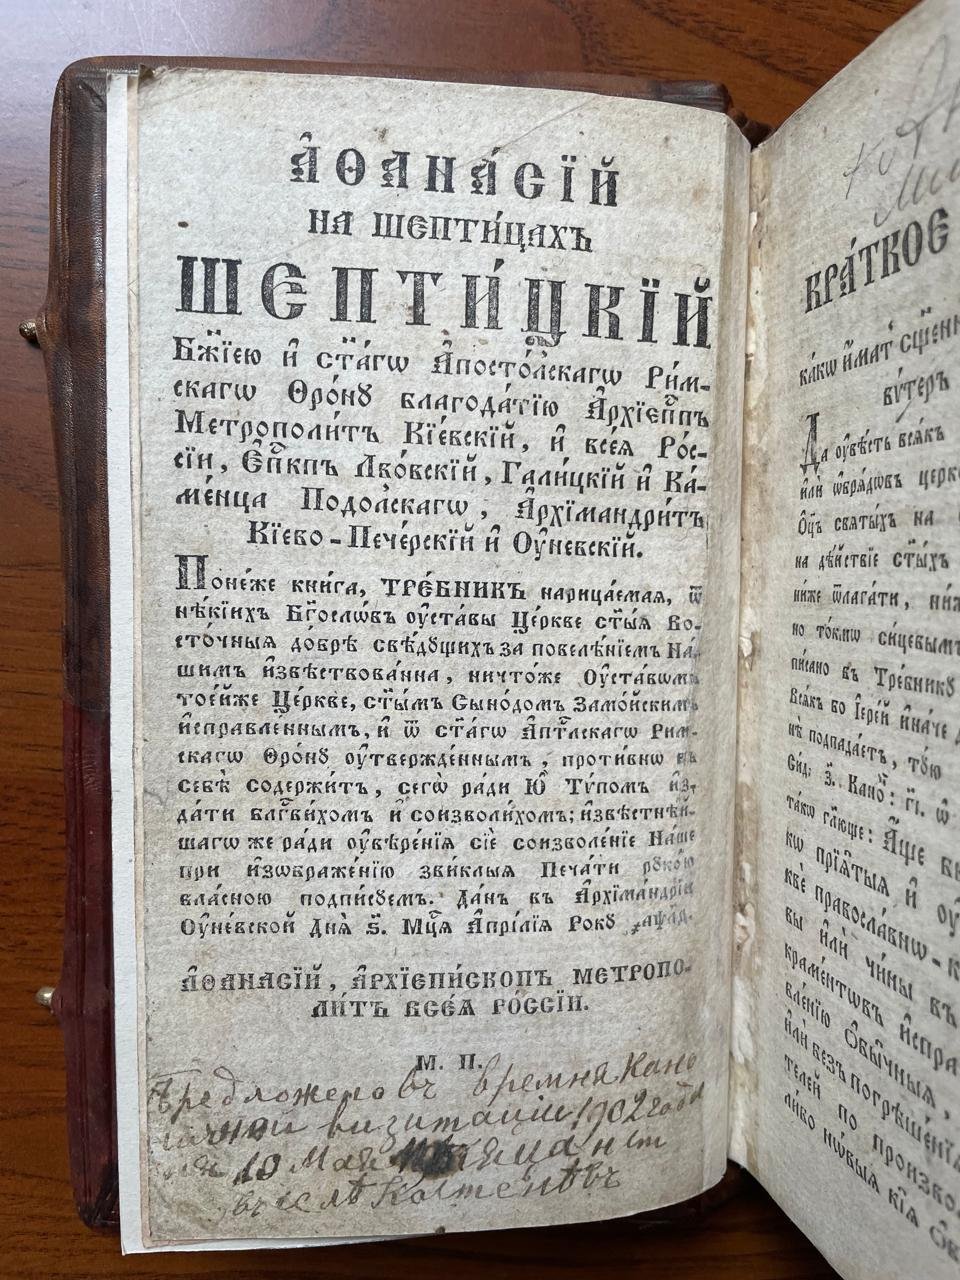 А҆ѲАНА́СЇЙ
НА ШЕПТИ́ЦАХЪ
ШЕПТИ́ЦКЇЙ
Бж҃їею и҆ ст҃а́гѡ А҆посто́лскагѡ Ри́м-
скагѡ Ѳро́нꙋ благода́тїю А҆рхїеп҃пъ
Метрополи́тъ Кїе́вскїй, и҆ всеѧ̀ Рѡ́с-
сїи, Е҆п҃кпъ Лво́вскїй, Гали́цкїй и҆ Ка-
ме́нца Подо́лскагѡ, А҆рхїмандри́тъ
Кїево-Пече́рскїй и҆ Оу҆не́вскїй.
Поне́же кни́га, ТРЕ́БНИКЪ нарица́емая, ѿ
нѣ́кїихъ Бг҃осло́въ оу҆ста́вы Це́ркве ст҃ы́ѧ Во-
сто́чныѧ до́брѣ свѣ́дꙋщихъ за повелѣ́нїемъ На́-
шимъ и҆звѣствова́нна, ничто́же Оу҆ста́вѡмъ
тоѐйже Це́ркве, ст҃ы́мъ Сѵно́домъ Замо́йскимъ
и҆спра́вле́ннымъ, и҆ ѿ ст҃а́гѡ А҆пⷭ҇тлскагѡ Рим-
скагѡ Ѳро́нꙋ оу҆твержде́ннымъ, проти́внѡ въ
себѣ̀ содержи́тъ, сегѡ̀ ра́ди Ю҆̀ Тѵ́помъ и҆з-
да́ти блгⷭ҇ви́хомъ и҆ соизво́лихомъ; и҆звѣ́стнѣй-
шагѡ же ра́ди оу҆вѣре́нїѧ сїѐ соизволе́нїе На́ше
при и҆зѡбраже́нїю зви́клыѧ Печа́ти рꙋко́ю
вла́сною подпи́сꙋемъ. Да́нъ въ А҆рхїма́ндрїи
Оу҆не́вской Днѧ̀ ѕ҃. Мцⷭ҇а А҆прі́лїѧ Рокꙋ
А҆ѲАНА́СЇЙ, А҆РХЇЕПИ́СКОПЪ МЕТРОПО-
ЛИ́ТЪ ВСЕѦ̀ РѠ́ССЇИ.
М. П.
Предложено въ времня кано
ничной визитаціи 1902 года
10 Мая
въ селѣ
КРА́ТКОЕ
ка́кѡ и҆́мат сщ҃е́нн
вну́терь
Да оу҆вѣ́сть всѧ́къ
и҆лѝ ѡ҆брѧ́дѡвъ церк
Оц҃ъ свѧты́хъ на
на дѣ́йствїе ст҃ы́хъ
ни́же ѿлага́ти, ни́ж
но то́кмѡ си́цевымъ
пи́сано въ Тре́бникꙋ
Всѧ́къ бо І҆ере́й и҆на́че
подпада́етъ, тꙋ́ю
Сид: з҃. Кано́: г҃і. ѿ
та́кѡ гл҃юще: А҆́ще
кѡ прїѧ̑тыѧ и҆
кве правосла́внѡ-к
вы и҆лѝ чи́ны въ
кра́ментѡвъ и҆спра
вле́нїю ѻ҆бы́чныѧ,
и҆лѝ без погрѣше́нїѧ
телей по произво
ли́бо нѡ́выѧ кі́ѧ